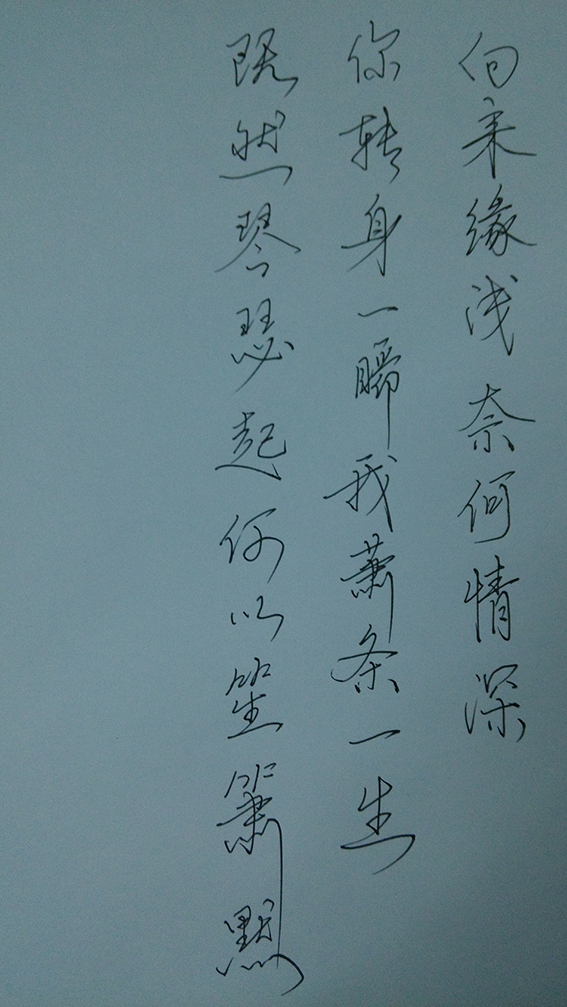 向来缘浅奈何情深
你转身一瞬我萧条一生
既然琴瑟起何以笙箫默